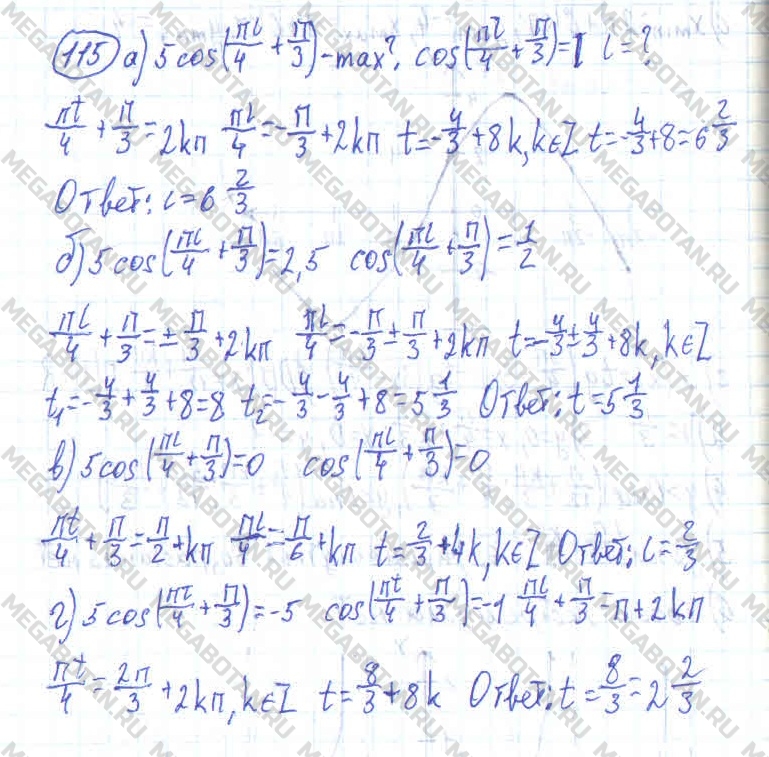 115 а) 5cos(πt/4 + π/3) - max?, cos(πt/4 + π/3) = 1 t = ?
πt/4 + π/3 = 2kπ πt/4 = -π/3 + 2kπ t = -4/3 + 8k, k∈Z t = -4/3 + 8 = 6 2/3
Ответ: t = 6 2/3
б) 5cos(πt/4 + π/3) = 2,5 cos(πt/4 + π/3) = 1/2
πt/4 + π/3 = ± π/3 + 2kπ πt/4 = -π/3 ± π/3 + 2kπ t = -4/3 ± 4/3 + 8k, k∈Z
t₁ = -4/3 + 4/3 + 8 = 8 t₂ = -4/3 - 4/3 + 8 = 5 1/3 Ответ: t = 5 1/3
в) 5cos(πt/4 + π/3) = 0 cos(πt/4 + π/3) = 0
πt/4 + π/3 = π/2 + kπ πt/4 = π/6 + kπ t = 2/3 + 4k, k∈Z Ответ: t = 2/3
г) 5cos(πt/4 + π/3) = -5 cos(πt/4 + π/3) = -1 πt/4 + π/3 = π + 2kπ
πt/4 = 2π/3 + 2kπ, k∈Z t = 8/3 + 8k Ответ: t = 8/3 = 2 2/3
MEGABOTAN.RU